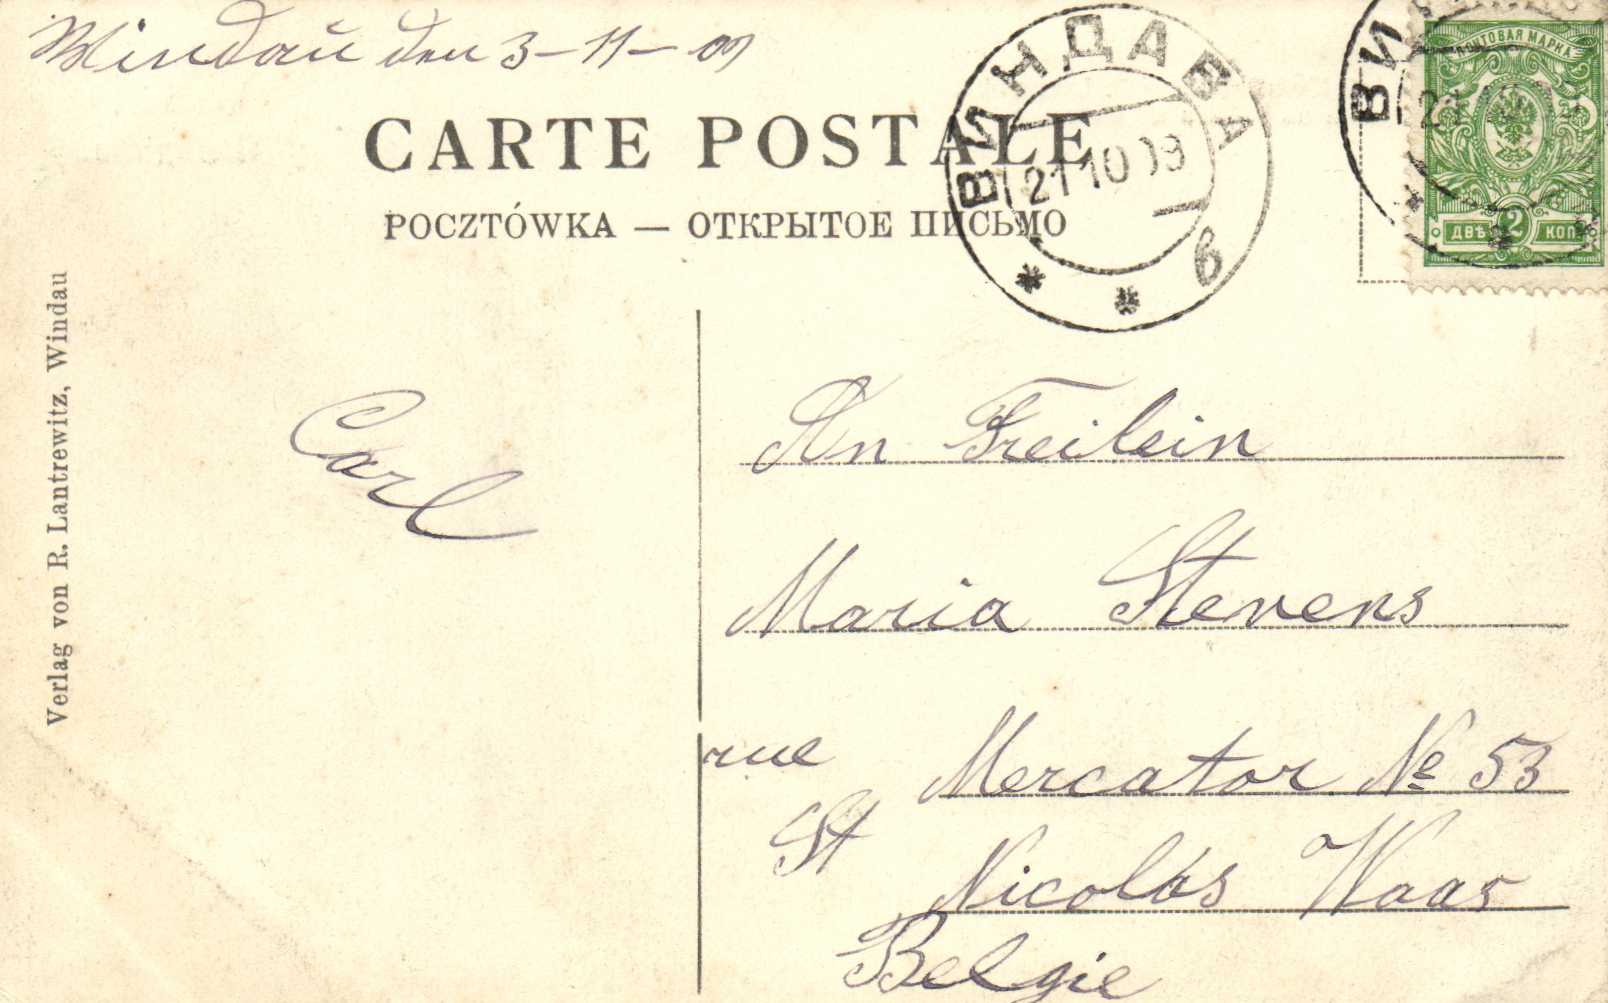 Windau den 3-11-09
CARTE POSTALE
POCZTÓWKA — ОТКРЫТОЕ ПИСЬМО
ВИНДАВА
21 10 09
в
ВИ
21
ПОЧТОВАЯ МАРКА
ДВѢ 2 КОП
Verlag von R. Lantrewitz, Windau
Carl
An Freilein
Maria Stevens
rue Mercator № 53
St Nicolas Waas
Belgie